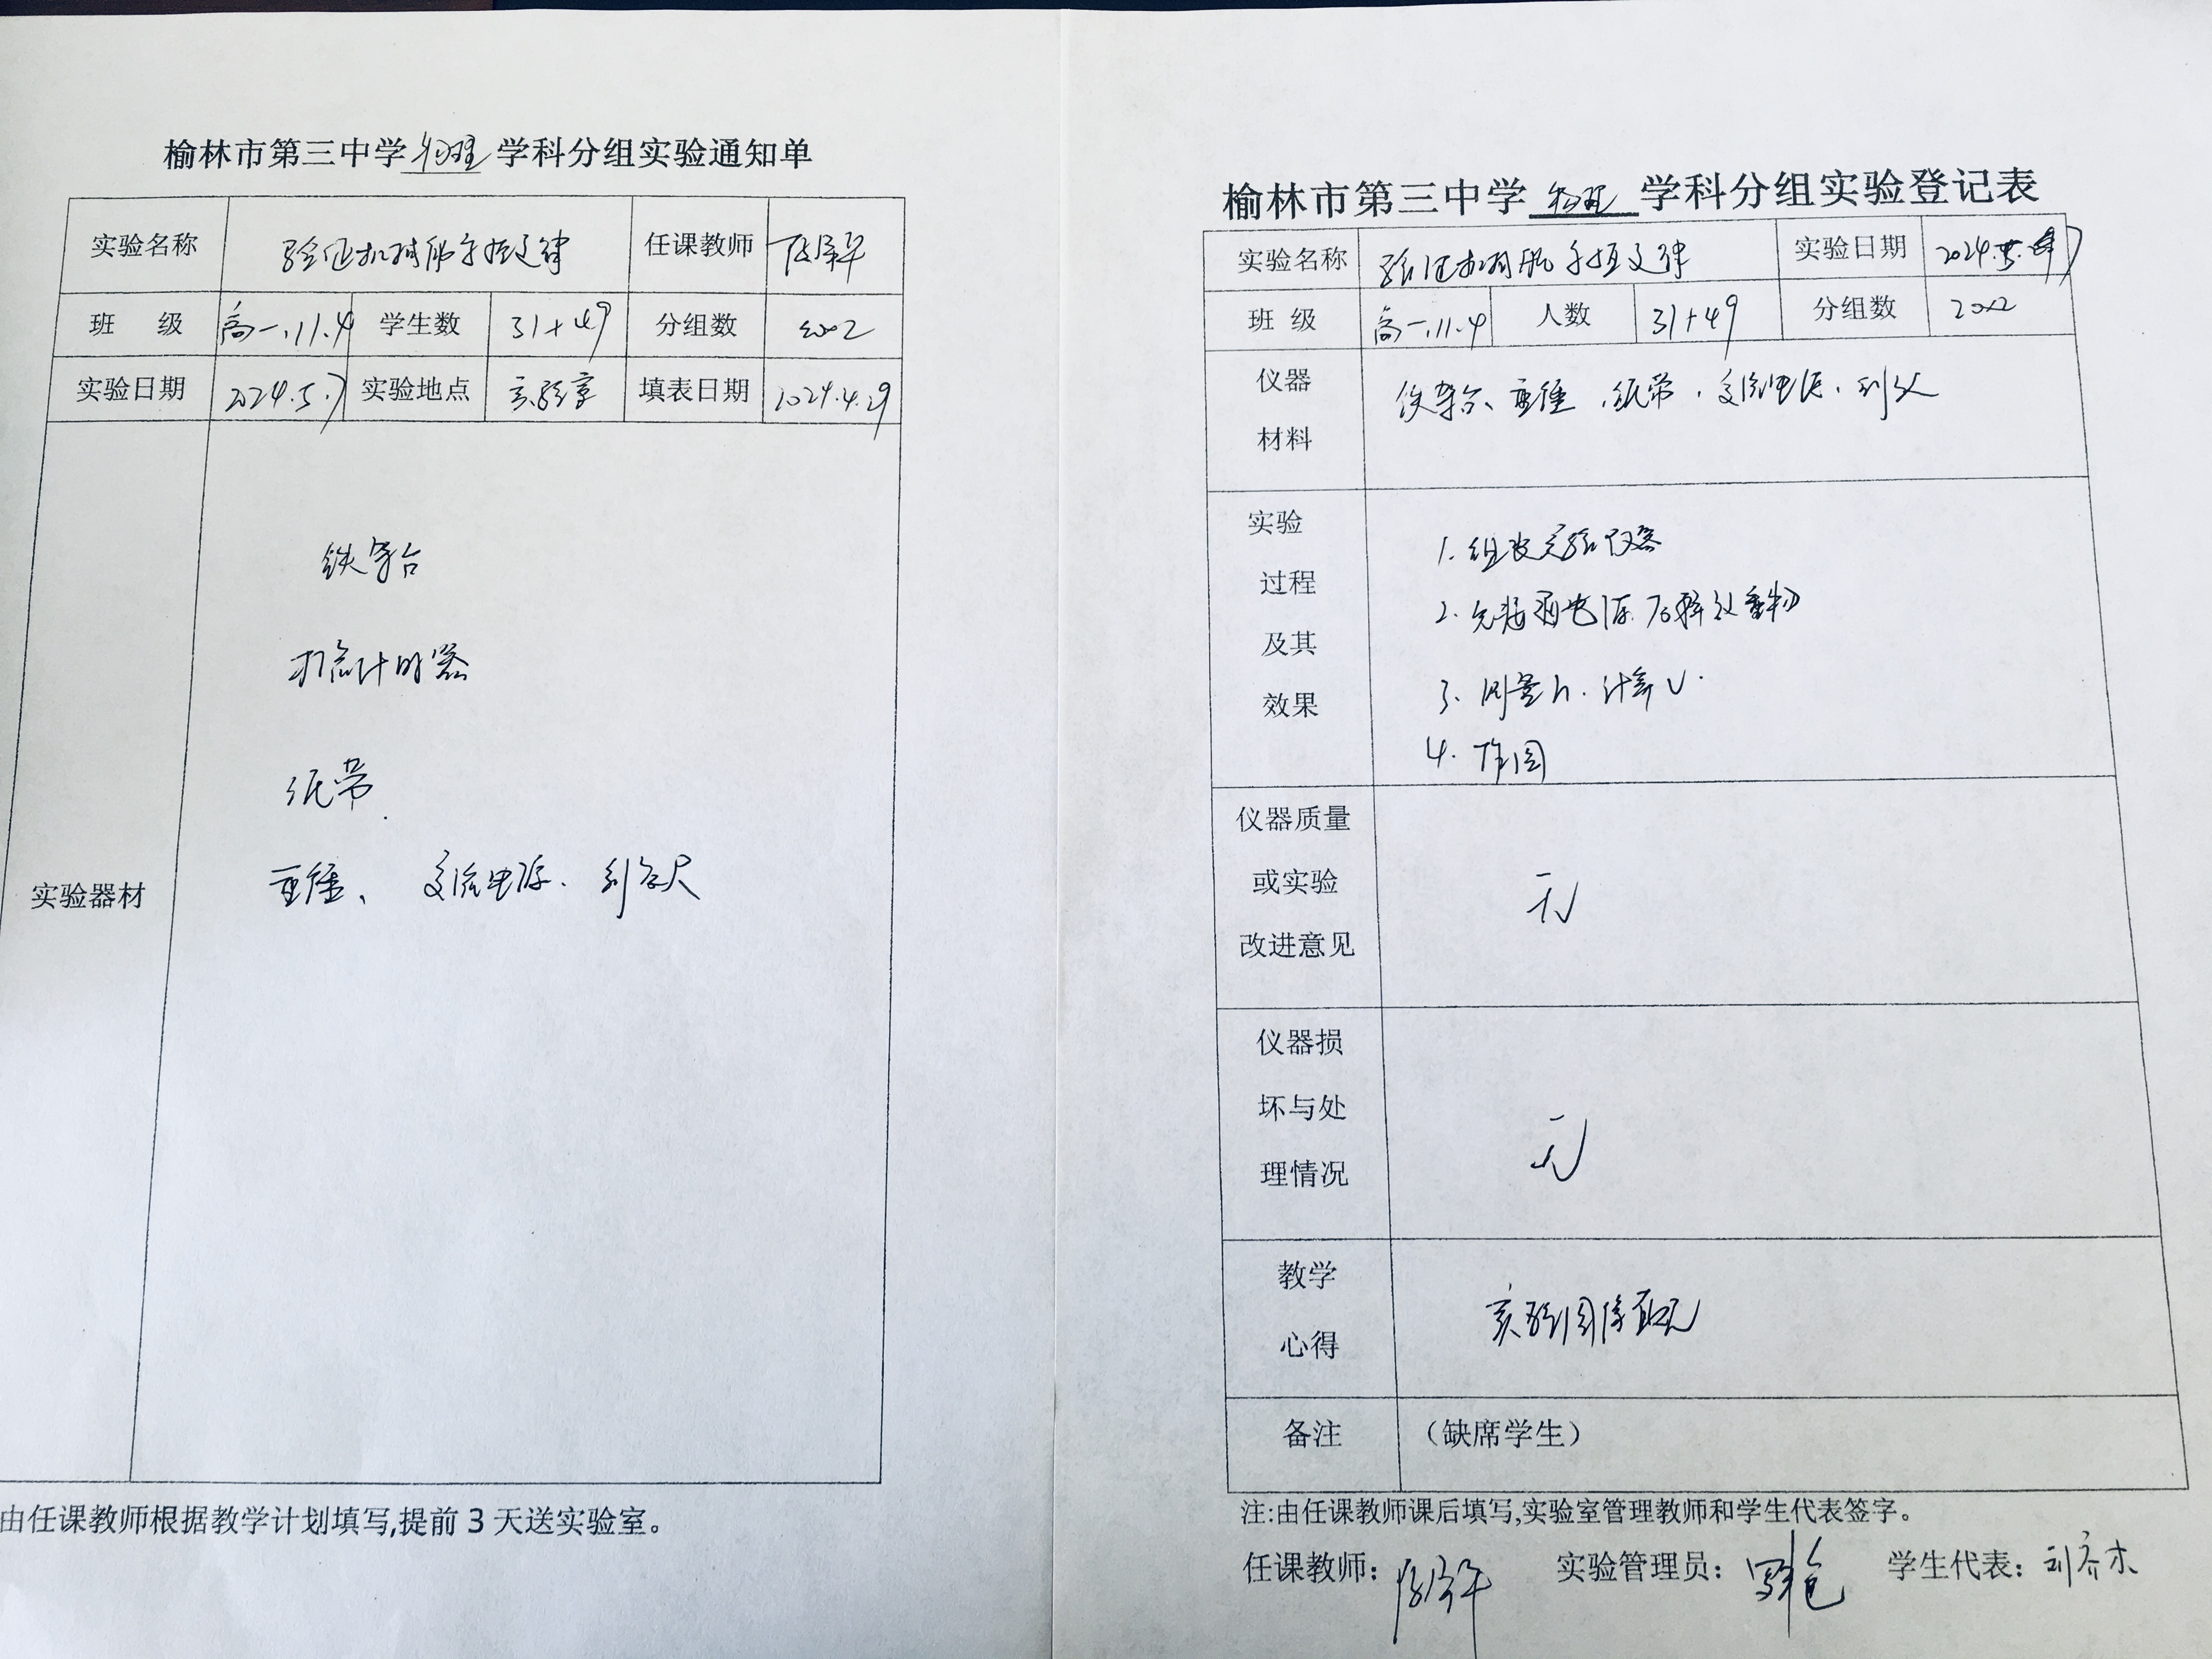 榆林市第三中学物理学科分组实验通知单
实验名称 验证机械能守恒定律 任课教师
班 级 高一.11.4 学生数 31+49 分组数 20×2
实验日期 2024.5.7 实验地点 实验室 填表日期 2024.4.29
实验器材
铁架台
打点计时器
纸带
重锤、 交流电源、刻度尺
由任课教师根据教学计划填写,提前 3 天送实验室。
榆林市第三中学物理学科分组实验登记表
实验名称 验证机械能守恒定律 实验日期 2024.5.7
班 级 高一.11.4 人数 31+49 分组数 20×2
仪器
材料
铁架台、重锤、纸带、交流电源、刻度尺
实验
过程
及其
效果
1. 组装实验仪器
2. 先接通电源.后释放重物
3. 测量h.计算v.
4. 作图
仪器质量
或实验
改进意见
无
仪器损
坏与处
理情况
无
教学
心得
实验图像直观
备注 （缺席学生）
注:由任课教师课后填写,实验室管理教师和学生代表签字。
任课教师: 实验管理员: 学生代表: 刘乔木